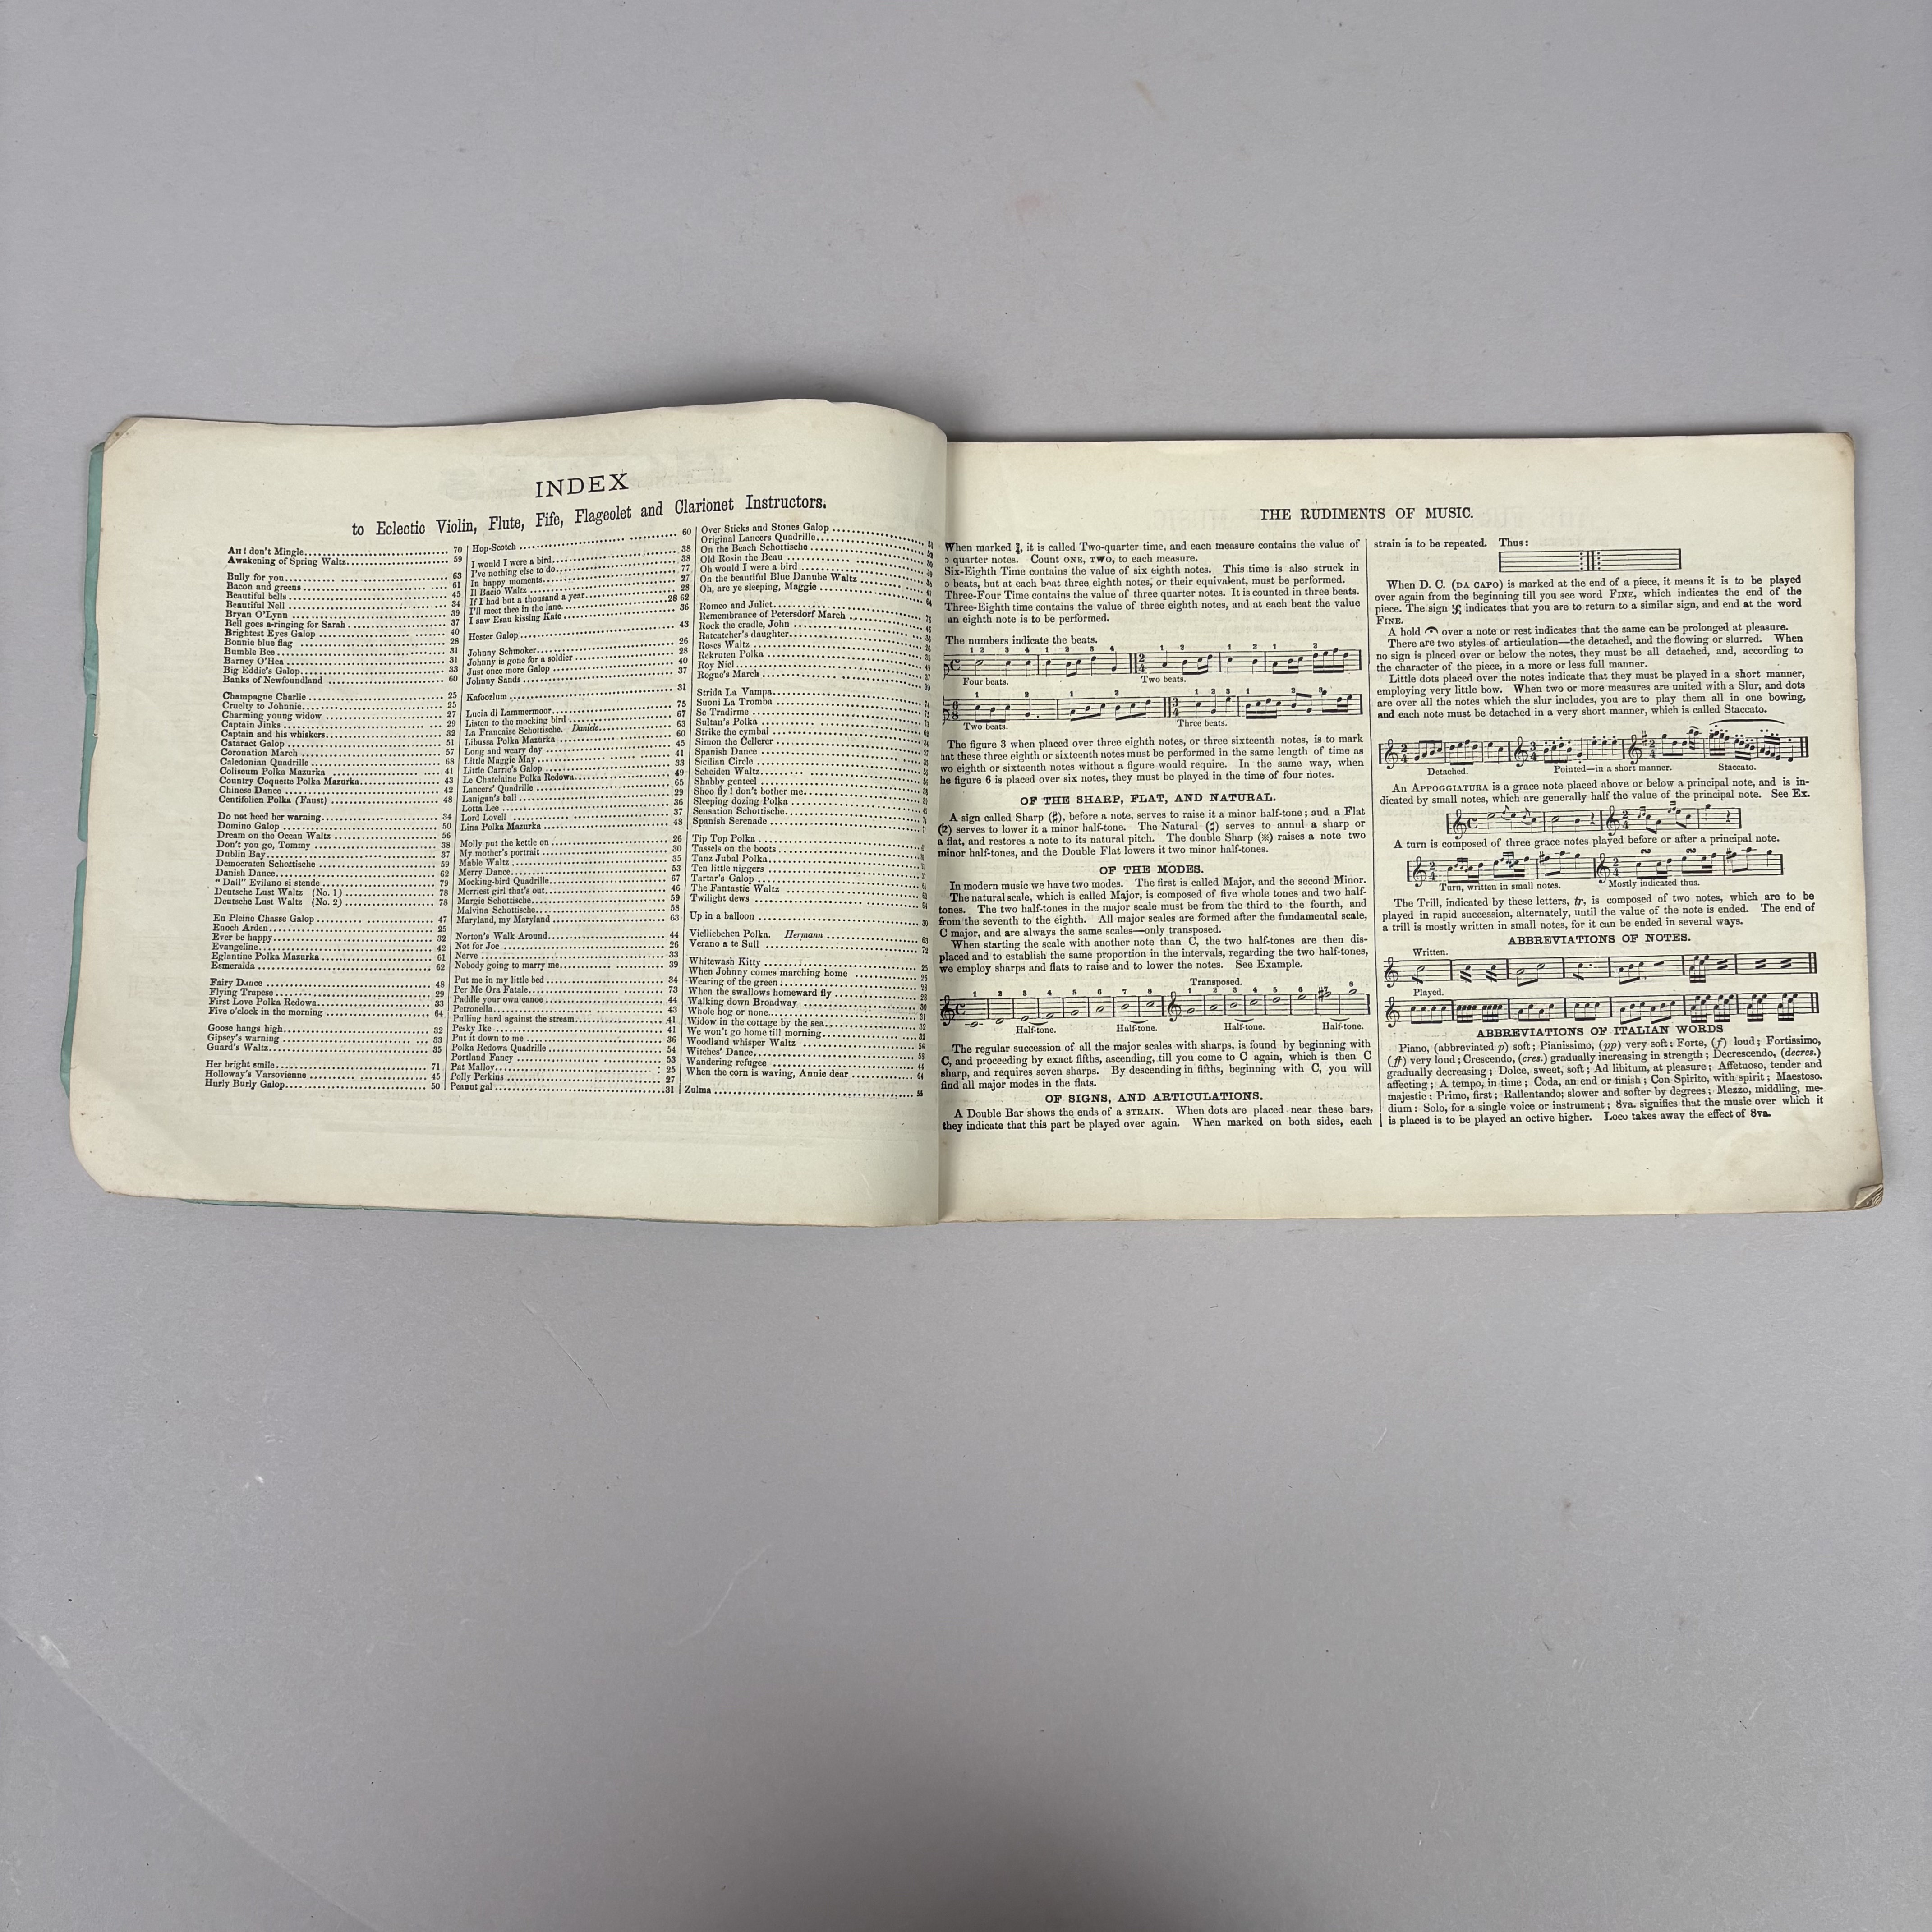 INDEX
to Eclectic Violin, Flute, Fife, Flageolet and Clarionet Instructors.
Ah! don't Mingle 70
Awakening of Spring Waltz 59
Bully for you 63
Bacon and greens 61
Beautiful bells 45
Beautiful Nell 34
Bryan O'Lynn 39
Bell goes a-ringing for Sarah 37
Brightest Eyes Galop 40
Bonnie blue flag 28
Bumble Bee 31
Barney O'Hea 31
Big Eddie's Galop 33
Banks of Newfoundland 60
Champagne Charlie 25
Cruelty to Johnnie 25
Charming young widow 27
Captain Jinks 29
Captain and his whiskers 32
Cataract Galop 51
Coronation March 57
Caledonian Quadrille 68
Coliseum Polka Mazurka 41
Country Coquette Polka Mazurka 43
Chinese Dance 42
Centifolien Polka (Faust) 48
Do not heed her warning 34
Domino Galop 50
Dream on the Ocean Waltz 56
Don't you go, Tommy 38
Dublin Bay 37
Democraten Schottische 59
Danish Dance 62
"Dall" Evilano si stende 79
Deutsche Lust Waltz (No. 1) 78
Deutsche Lust Waltz (No. 2) 78
En Pleine Chasse Galop 47
Enoch Arden 25
Ever be happy 32
Evangeline 42
Eglantine Polka Mazurka 61
Esmeralda 62
Fairy Dance 48
Flying Trapese 29
First Love Polka Redowa 33
Five o'clock in the morning 64
Goose hangs high 32
Gipsey's warning 33
Guard's Waltz 35
Her bright smile 71
Holloway's Varsovienne 45
Hurly Burly Galop 50
Hop-Scotch 60
I would I were a bird 38
I've nothing else to do 38
In happy moments 77
Il Bacio Waltz 27
If I had but a thousand a year 28
I'll meet thee in the lane 28 62
I saw Esau kissing Kate 36
Hester Galop 43
Johnny Schmoker 26
Johnny is gone for a soldier 28
Just once more Galop 40
Johnny Sands 37
Kafoozlum 31
Lucia di Lammermoor 75
Listen to the mocking bird 67
La Francaise Schottische. Daniele 63
Libussa Polka Mazurka 60
Long and weary day 45
Little Maggie May 41
Little Carrie's Galop 33
Le Chatelaine Polka Redowa 49
Lancers' Quadrille 65
Lanigan's ball 29
Lotta Lee 36
Lord Lovell 37
Lina Polka Mazurka 48
Molly put the kettle on 26
My mother's portrait 30
Mable Waltz 35
Merry Dance 53
Mocking-bird Quadrille 67
Merriest girl that's out 46
Margie Schottische 59
Malvina Schottische 58
Maryland, my Maryland 63
Norton's Walk Around 44
Not for Joe 26
Nerve 33
Nobody going to marry me 39
Put me in my little bed 34
Per Me Ora Fatale 73
Paddle your own canoe 44
Petronella 43
Pulling hard against the stream 41
Pesky Ike 41
Put it down to me 36
Polka Redowa Quadrille 54
Portland Fancy 53
Pat Malloy 25
Polly Perkins 27
Peanut gal 31
Over Sticks and Stones Galop
Original Lancers Quadrille
On the Beach Schottische
Old Rosin the Beau
Oh would I were a bird
On the beautiful Blue Danube Waltz
Oh, are ye sleeping, Maggie
Romeo and Juliet
Remembrance of Petersdorf March
Rock the cradle, John
Ratcatcher's daughter
Roses Waltz
Rekruten Polka
Roy Niel
Rogue's March
Strida La Vampa
Suoni La Tromba
Se Tradirme
Sultan's Polka
Strike the cymbal
Simon the Cellerer
Sicilian Circle
Scheiden Waltz
Spanish Dance
Shabby genteel
Shoo fly! don't bother me
Sleeping dozing Polka
Sensation Schottische
Spanish Serenade
Tip Top Polka
Tassels on the boots
Tanz Jubal Polka
Ten little niggers
Tartar's Galop
The Fantastic Waltz
Twilight dews
Up in a balloon
Vielliebchen Polka. Hermann
Verano a te Suil 72
Whitewash Kitty 25
When Johnny comes marching home 26
Wearing of the green 28
When the swallows homeward fly 28
Walking down Broadway 30
Whole hog or none 31
Widow in the cottage by the sea 32
We won't go home till morning 32
Woodland whisper Waltz
Witches' Dance
Wandering refugee 44
When the corn is waving, Annie dear 64
Zulma
THE RUDIMENTS OF MUSIC.
When marked 2/4, it is called Two-quarter time, and each measure contains the value of
quarter notes. Count ONE, TWO, to each measure.
Six-Eighth Time contains the value of six eighth notes. This time is also struck in
beats, but at each beat three eighth notes, or their equivalent, must be performed.
Three-Four Time contains the value of three quarter notes. It is counted in three beats.
Three-Eighth time contains the value of three eighth notes, and at each beat the value
an eighth note is to be performed.
The numbers indicate the beats.
1 2 3 4 1 2 3 4 1 2 1 2 1 2
Four beats. Two beats.
1 2 1 2 1 2 3 1 2 3
Two beats. Three beats.
The figure 3 when placed over three eighth notes, or three sixteenth notes, is to mark
hat these three eighth or sixteenth notes must be performed in the same length of time as
wo eighth or sixteenth notes without a figure would require. In the same way, when
he figure 6 is placed over six notes, they must be played in the time of four notes.
OF THE SHARP, FLAT, AND NATURAL.
A sign called Sharp (♯), before a note, serves to raise it a minor half-tone; and a Flat
(♭) serves to lower it a minor half-tone. The Natural (♮) serves to annul a sharp or
a flat, and restores a note to its natural pitch. The double Sharp (※) raises a note two
minor half-tones, and the Double Flat lowers it two minor half-tones.
OF THE MODES.
In modern music we have two modes. The first is called Major, and the second Minor.
The natural scale, which is called Major, is composed of five whole tones and two half-
tones. The two half-tones in the major scale must be from the third to the fourth, and
from the seventh to the eighth. All major scales are formed after the fundamental scale,
C major, and are always the same scales—only transposed.
When starting the scale with another note than C, the two half-tones are then dis-
placed and to establish the same proportion in the intervals, regarding the two half-tones,
we employ sharps and flats to raise and to lower the notes. See Example.
Transposed.
1 2 3 4 5 6 7 8 1 2 3 4 5 6 7 8
Half-tone. Half-tone. Half-tone. Half-tone.
The regular succession of all the major scales with sharps, is found by beginning with
C, and proceeding by exact fifths, ascending, till you come to C again, which is then C
sharp, and requires seven sharps. By descending in fifths, beginning with C, you will
find all major modes in the flats.
OF SIGNS, AND ARTICULATIONS.
A Double Bar shows the ends of a STRAIN. When dots are placed near these bars,
they indicate that this part be played over again. When marked on both sides, each
strain is to be repeated. Thus:
When D. C. (DA CAPO) is marked at the end of a piece, it means it is to be played
over again from the beginning till you see word FINE, which indicates the end of the
piece. The sign 𝄋 indicates that you are to return to a similar sign, and end at the word
FINE.
A hold 𝄐 over a note or rest indicates that the same can be prolonged at pleasure.
There are two styles of articulation—the detached, and the flowing or slurred. When
no sign is placed over or below the notes, they must be all detached, and, according to
the character of the piece, in a more or less full manner.
Little dots placed over the notes indicate that they must be played in a short manner,
employing very little bow. When two or more measures are united with a Slur, and dots
are over all the notes which the slur includes, you are to play them all in one bowing,
and each note must be detached in a very short manner, which is called Staccato.
Detached. Pointed—in a short manner. Staccato.
An APPOGGIATURA is a grace note placed above or below a principal note, and is in-
dicated by small notes, which are generally half the value of the principal note. See Ex.
A turn is composed of three grace notes played before or after a principal note.
Turn, written in small notes. Mostly indicated thus.
The Trill, indicated by these letters, tr, is composed of two notes, which are to be
played in rapid succession, alternately, until the value of the note is ended. The end of
a trill is mostly written in small notes, for it can be ended in several ways.
ABBREVIATIONS OF NOTES.
Written.
Played.
ABBREVIATIONS OF ITALIAN WORDS
Piano, (abbreviated p) soft; Pianissimo, (pp) very soft; Forte, (f) loud; Fortissimo,
(ff) very loud; Crescendo, (cres.) gradually increasing in strength; Decrescendo, (decres.)
gradually decreasing; Dolce, sweet, soft; Ad libitum, at pleasure; Affetuoso, tender and
affecting; A tempo, in time; Coda, an end or finish; Con Spirito, with spirit; Maestoso.
majestic: Primo, first; Rallentando; slower and softer by degrees; Mezzo, middling, me-
dium: Solo, for a single voice or instrument; 8va. signifies that the music over which it
is placed is to be played an octive higher. Loco takes away the effect of 8va.